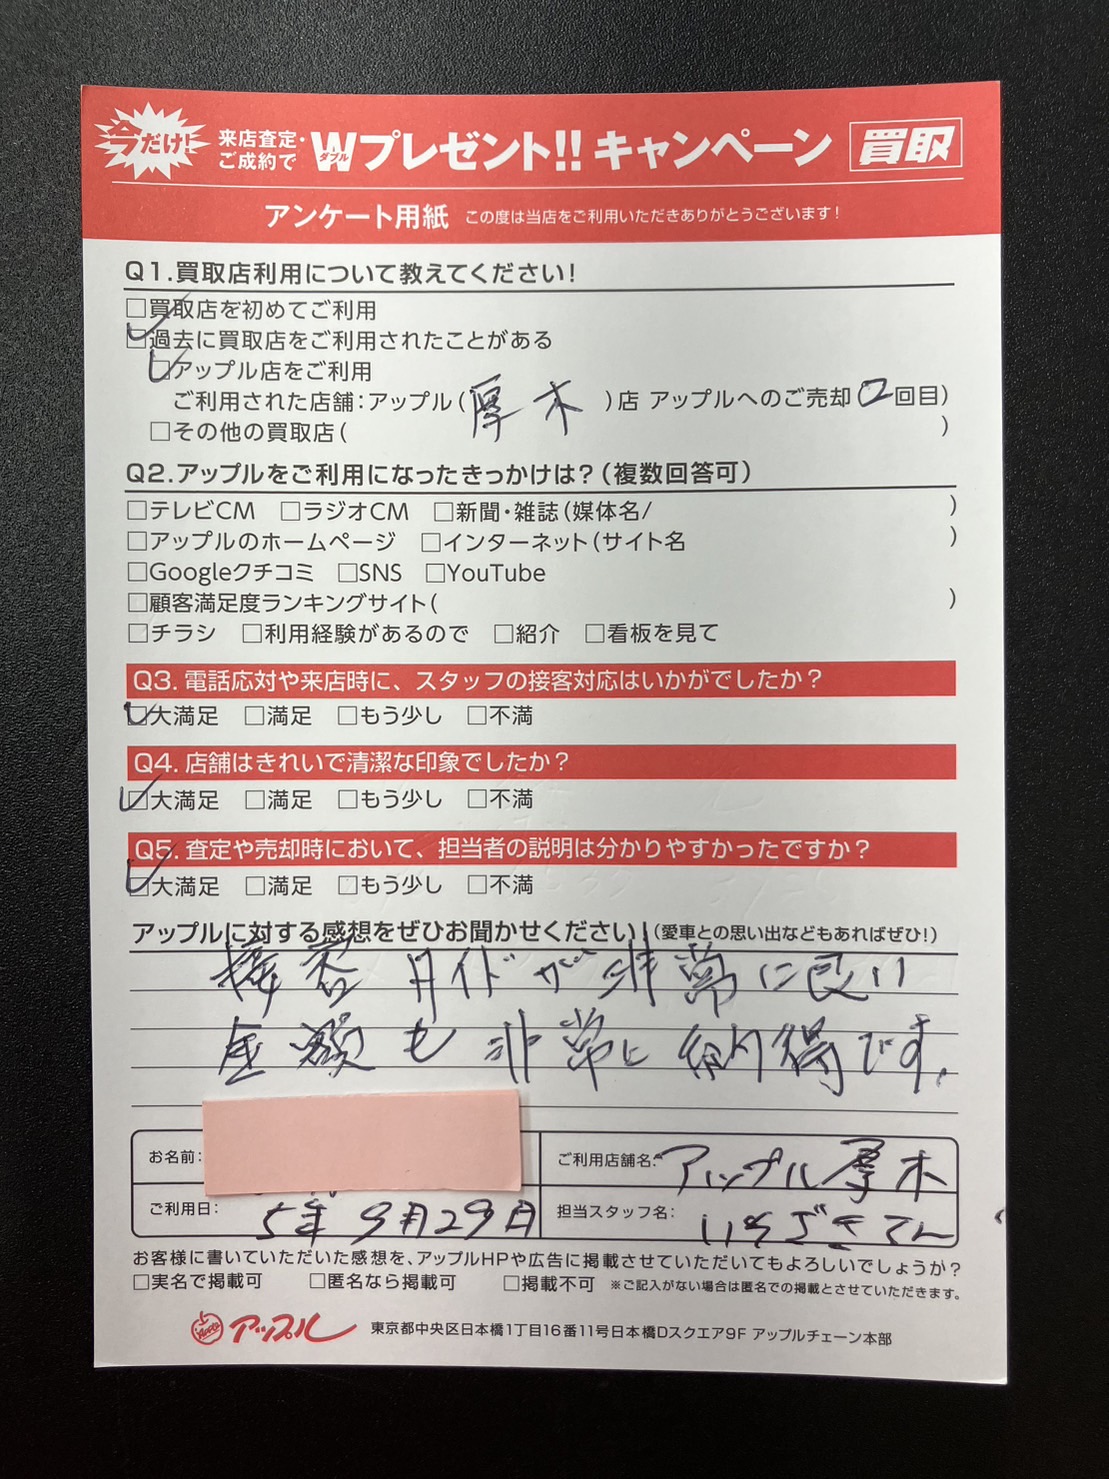 今だけ!
来店査定・ご成約で Wダブルプレゼント!! キャンペーン 買取
アンケート用紙 この度は当店をご利用いただきありがとうございます!
Q1.買取店利用について教えてください!
□買取店を初めてご利用
□過去に買取店をご利用されたことがある
□アップル店をご利用
ご利用された店舗:アップル(厚木)店 アップルへのご売却2回目)
□その他の買取店( )
Q2.アップルをご利用になったきっかけは?(複数回答可)
□テレビCM □ラジオCM □新聞・雑誌(媒体名/ )
□アップルのホームページ □インターネット(サイト名 )
□Googleクチコミ □SNS □YouTube
□顧客満足度ランキングサイト( )
□チラシ □利用経験があるので □紹介 □看板を見て
Q3. 電話応対や来店時に、スタッフの接客対応はいかがでしたか?
□大満足 □満足 □もう少し □不満
Q4. 店舗はきれいで清潔な印象でしたか?
□大満足 □満足 □もう少し □不満
Q5. 査定や売却時において、担当者の説明は分かりやすかったですか?
□大満足 □満足 □もう少し □不満
アップルに対する感想をぜひお聞かせください!(愛車との思い出などもあればぜひ!)
接客 ガイドが非常に良い
金額も非常に納得です.
お名前: ご利用店舗名: アップル厚木
ご利用日: 5年9月29日 担当スタッフ名:
お客様に書いていただいた感想を、アップルHPや広告に掲載させていただいてもよろしいでしょうか?
□実名で掲載可 □匿名なら掲載可 □掲載不可 ※ご記入がない場合は匿名での掲載とさせていただきます。
アップル 東京都中央区日本橋1丁目16番11号日本橋Dスクエア9F アップルチェーン本部